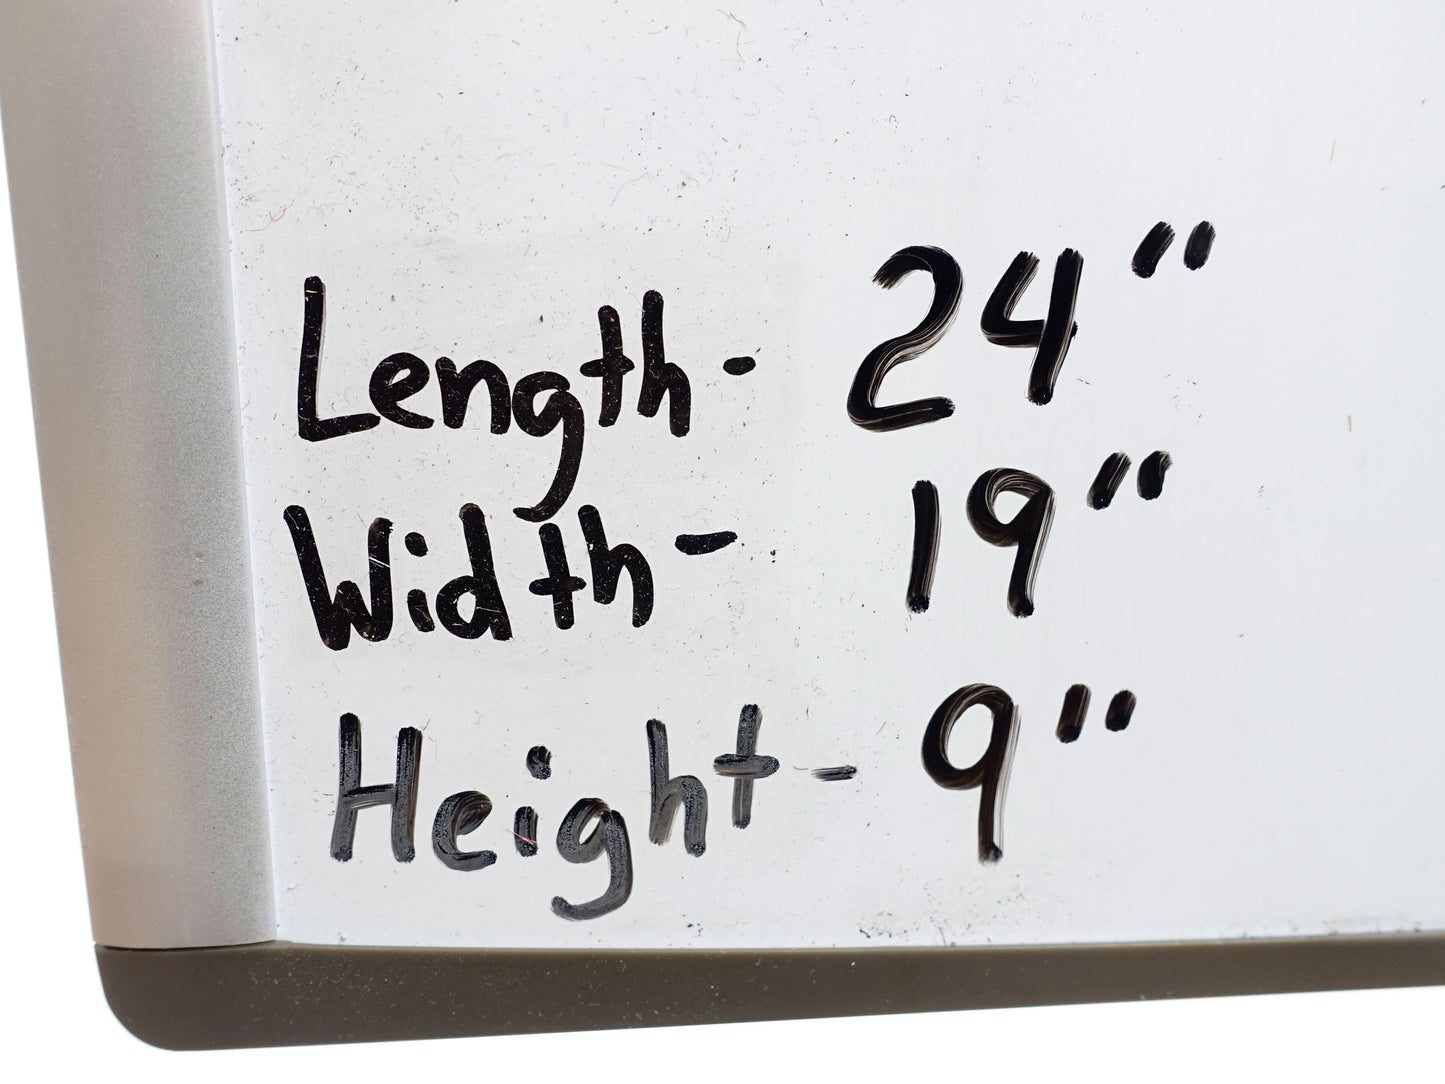 Length- 24"
Width- 19"
Height- 9"